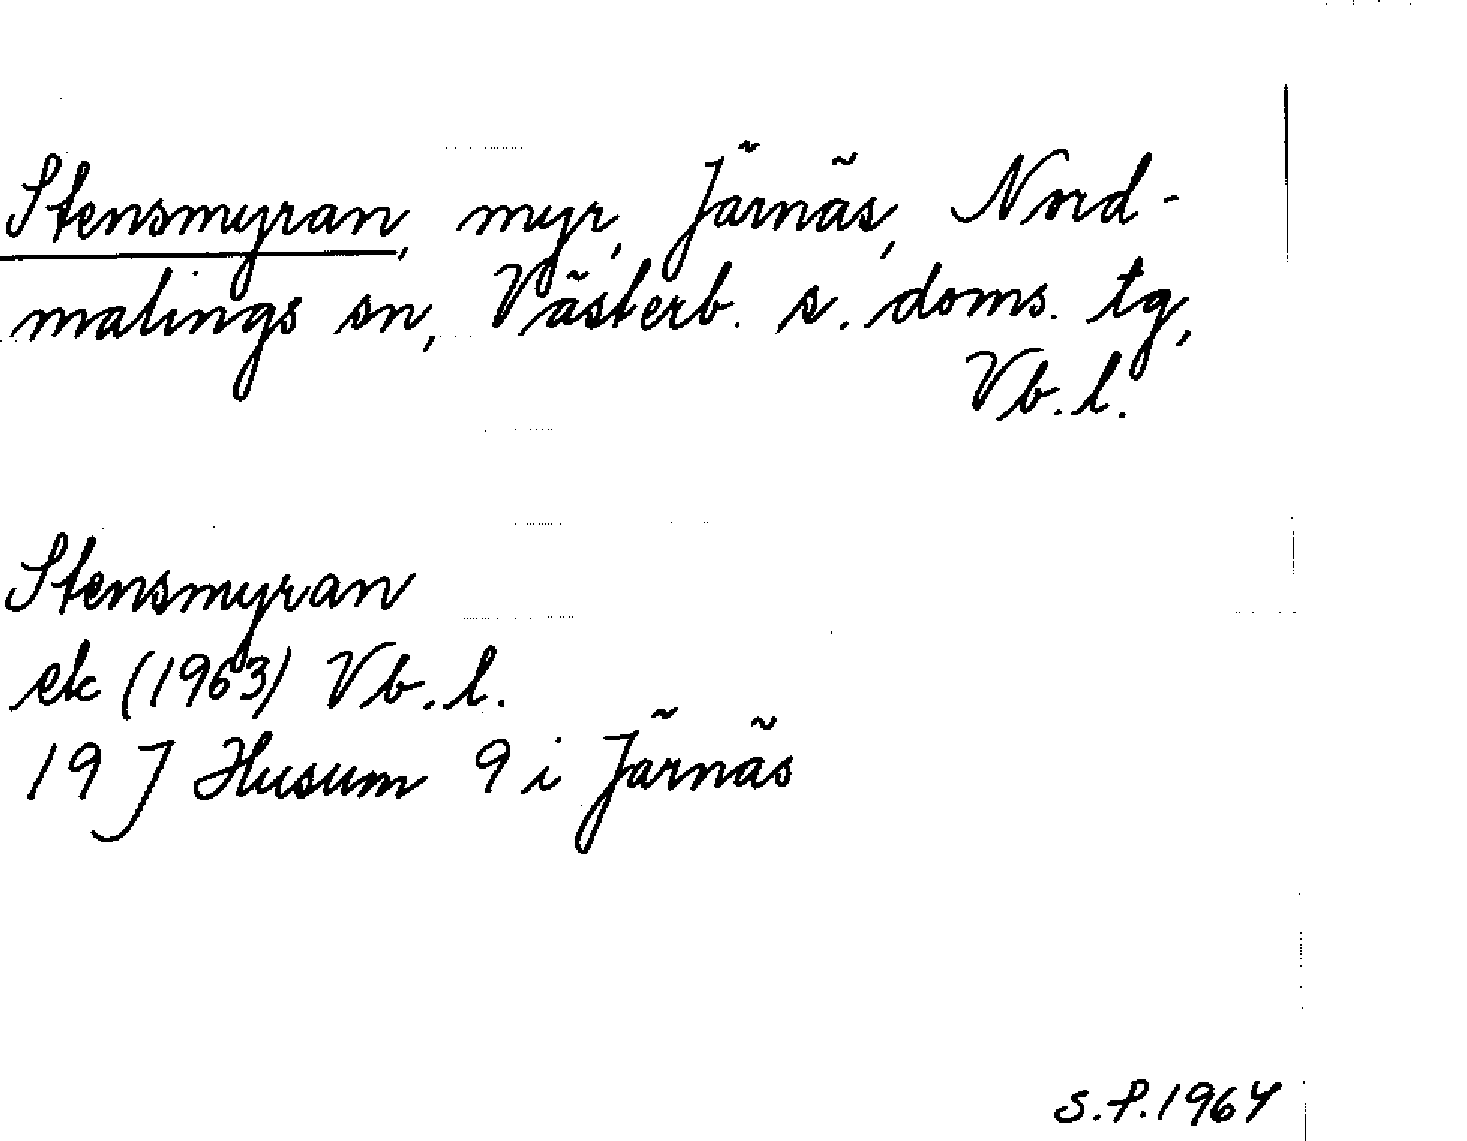 Stensmyran, myr, Järnäs, Nord-
malings sn, Västerb. s. doms. tg,
Vb. l.
Stensmyran
ek (1963) Vb. l.
19 J Husum 9 i Järnäs
S.P. 1964